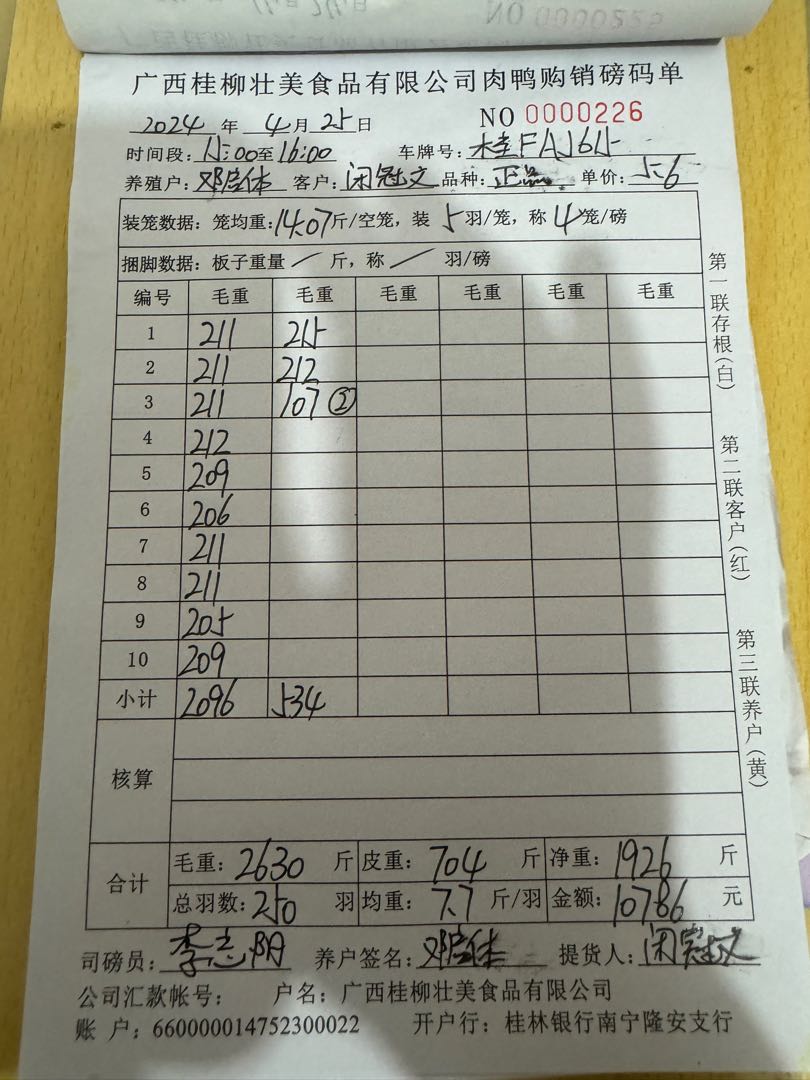 广西桂柳壮美食品有限公司肉鸭购销磅码单
2024 年 4 月 25 日 NO 0000226
时间段: 15:00至16:00 车牌号: 桂FAJ615
养殖户: 邓启体 客户: 闭冠文 品种: 正品 单价: 5.6
装笼数据: 笼均重: 14.07 斤/空笼, 装 5 羽/笼, 称 4 笼/磅
捆脚数据: 板子重量 / 斤, 称 / 羽/磅
编号 毛重 毛重 毛重 毛重 毛重 毛重
1 211 215
2 211 212
3 211 107 ②
4 212
5 209
6 206
7 211
8 211
9 205
10 209
小计 2096 534
核算
合计 毛重: 2630 斤 皮重: 704 斤 净重: 1926 斤
总羽数: 250 羽 均重: 7.7 斤/羽 金额: 10786 元
司磅员: 李志阴 养户签名: 邓启体 提货人: 闭冠文
公司汇款帐号: 户名: 广西桂柳壮美食品有限公司
账 户: 660000014752300022 开户行: 桂林银行南宁隆安支行
第一联存根(白)
第二联客户(红)
第三联养户(黄)